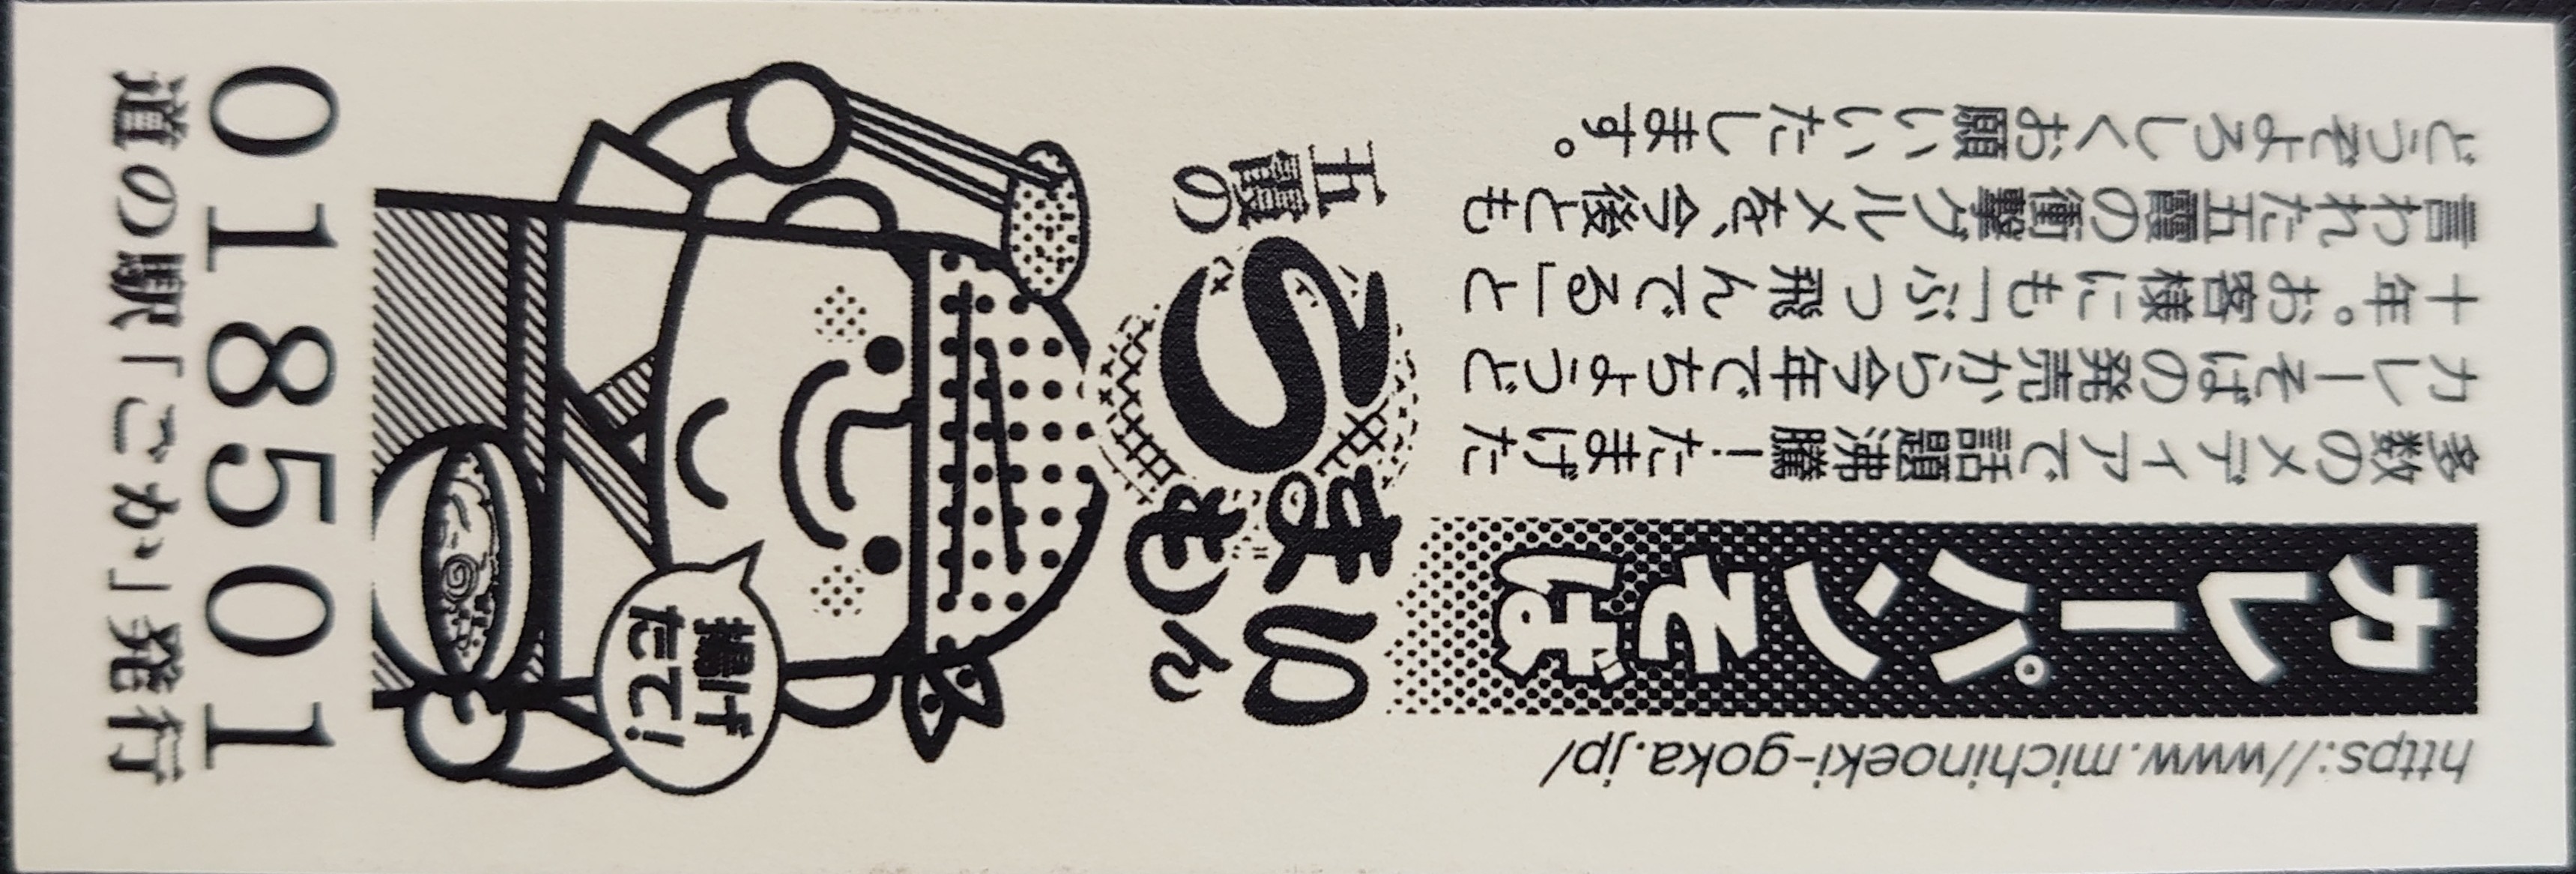 https://www.michinoeki-goka.jp/
カレーパンそば
多数のメディアで話題沸騰!たまげた
カレーそばの発売から今年でちょうど
十年。お客様にも「ぶっ飛んでる」と
言われた五霞の衝撃グルメを、今後とも
どうぞよろしくお願いいたします。
五霞の
うまい
もん
揚げ
たて!
018501
道の駅「ごか」発行